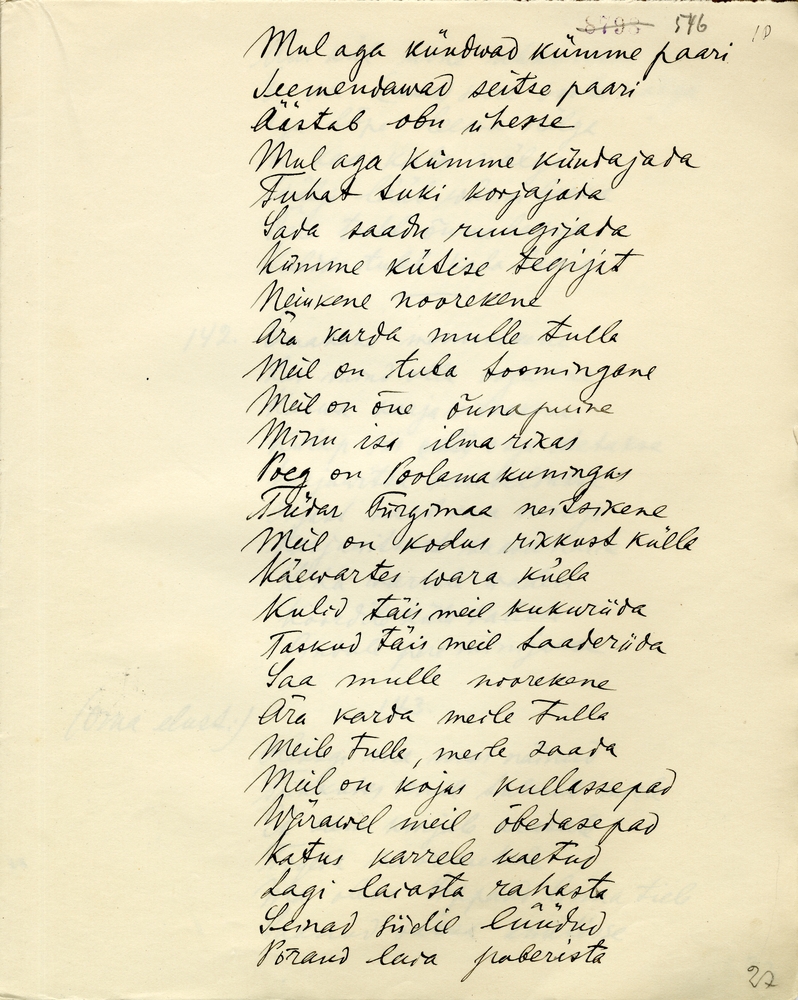 546
Mul aga kündwad kümme paari
Seemendawad seitse paari
Äästab obu ühesse
Mul aga kümme kündajada
Tuhat tuki korjajada
Sada saadu ruugijada
Kümme kütise tegijat
Neiukene noorekene
Ära karda mulle tulla
Meil on tuba toomingane
Meil on õne õunapuine
Minu isa ilma rikas
Poeg on Poolama kuningas
Tüdar Türgimaa neitsikene
Meil on kodus rikkust külla
Käewartes wara külla
Kulid täis meil kukuriida
Taskud täis meil taaderiida
Saa mulle noorekene
Ära karda meile tulla
Meile tulla, meile saada
Meil on kojas kullassepad
Wärawel meil õbedasepad
Katus karrele kaetud
Lagi laiasta rahasta
Seinad siidil lüüdud
Põrand laia paberista
27